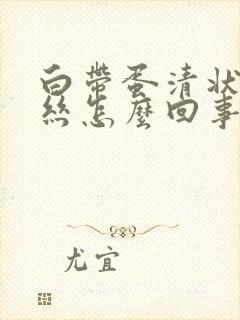 白帶蛋清狀
絲怎麼回事
尤宜